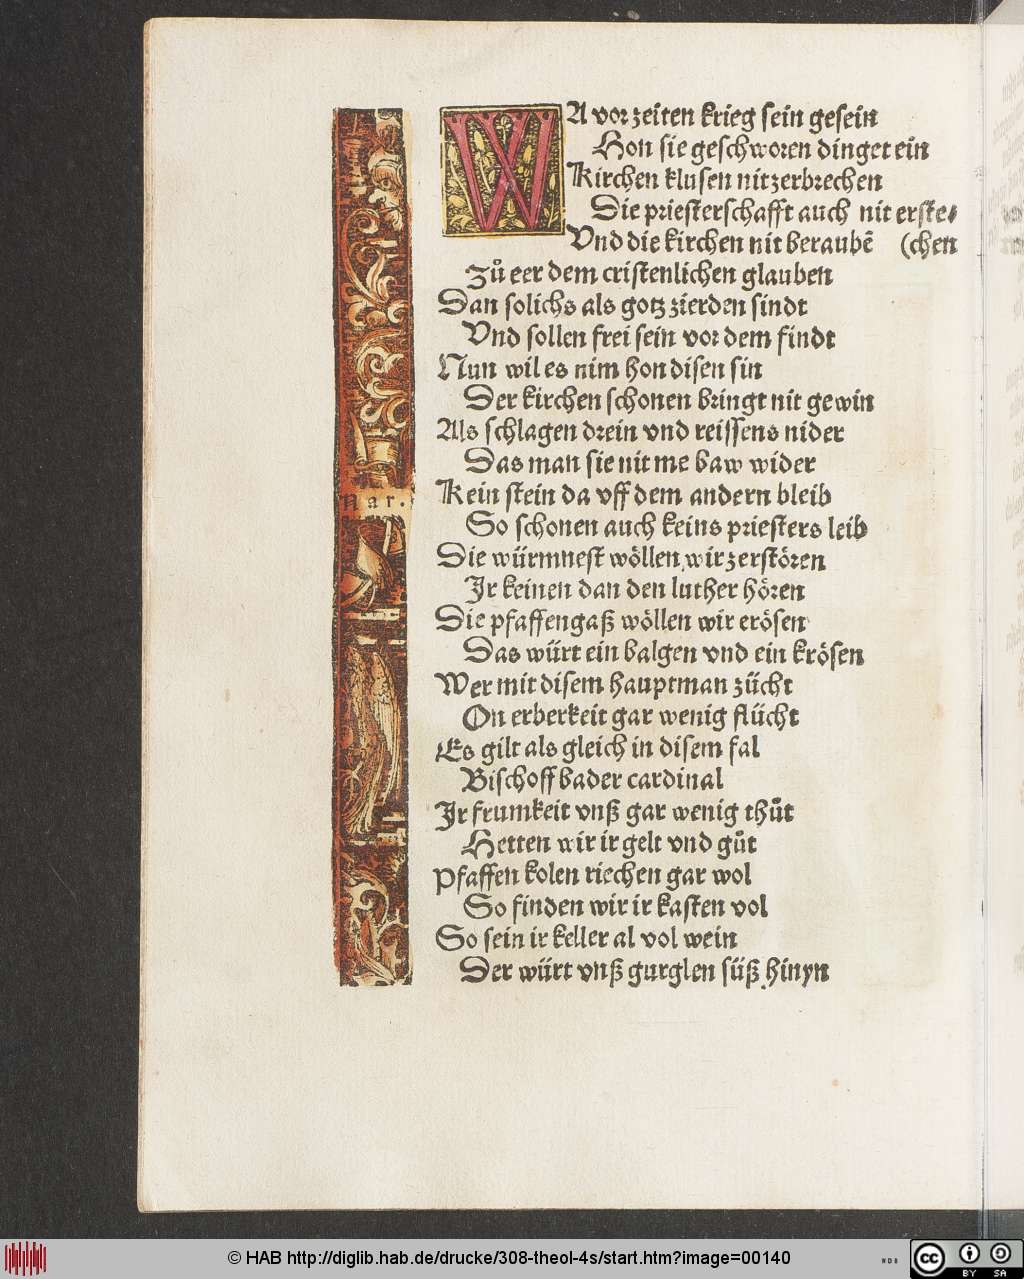 WA vor zeiten krieg sein gesein
Hon sie geschworen dinget ein
Kirchen klusen nit zerbrechen
Die priesterschafft auch nit erste⸗
Vnd die kirchen nit beraubē (chen
Zuͦ eer dem cristenlichen glauben
Dan solichs als gotz zierden sindt
Vnd sollen frei sein vor dem findt
Nun wil es nim hon disen sin
Der kirchen schonen bringt nit gewin
Als schlagen drein vnd reissens nider
Das man sie nit me baw wider
Kein stein da vff dem andern bleib
So schonen auch keins priesters leib
Nar.
Die würmnest wöllen wir zerstören
Ir keinen dan den luther hören
Die pfaffengaß wöllen wir erösen
Das würt ein balgen vnd ein krösen
Wer mit disem hauptman zücht
On erberkeit gar wenig flücht
Es gilt als gleich in disem fal
Bischoff bader cardinal
Ir frumkeit vnß gar wenig thuͦt
Hetten wir ir gelt vnd guͦt
Pfaffen kolen riechen gar wol
So finden wir ir kasten vol
So sein ir keller al vol wein
Der würt vnß gurglen süß hinyn
© HAB http://diglib.hab.de/drucke/308-theol-4s/start.htm?image=00140
WDB
cc BY SA